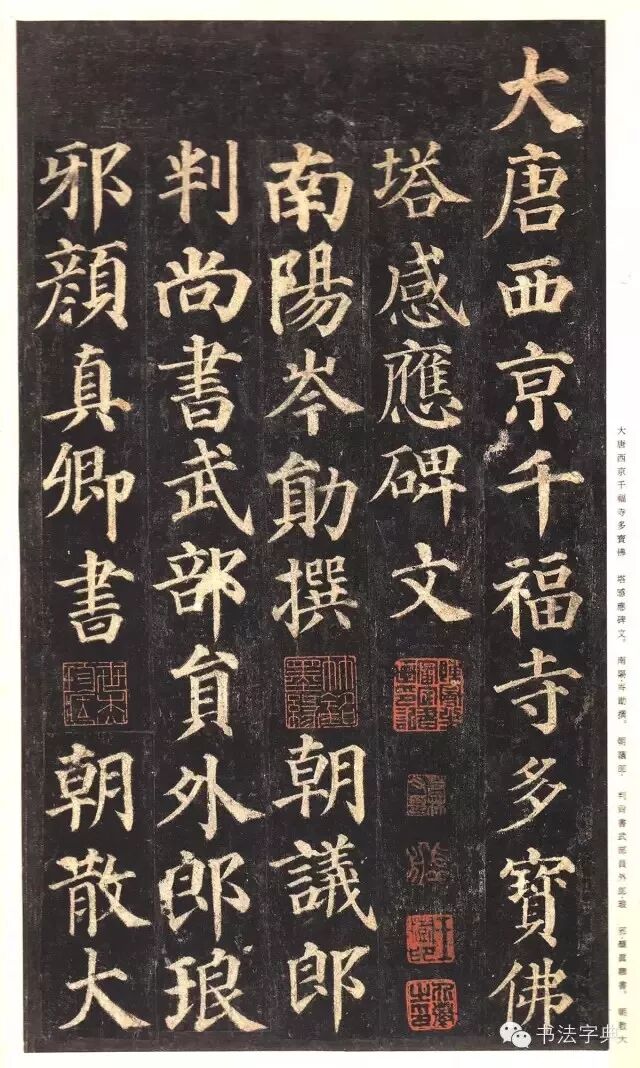 大唐西京千福寺多寶佛
塔感應碑文
南陽岑勛撰 朝議郎
判尚書武部員外郎琅
邪顏真卿書 朝散大
大唐西京千福寺多寶佛 塔感應碑文。南陽岑勛撰。朝議郎 判尚書武部員外郎琅 邪顏真卿書。朝散大
书法字典